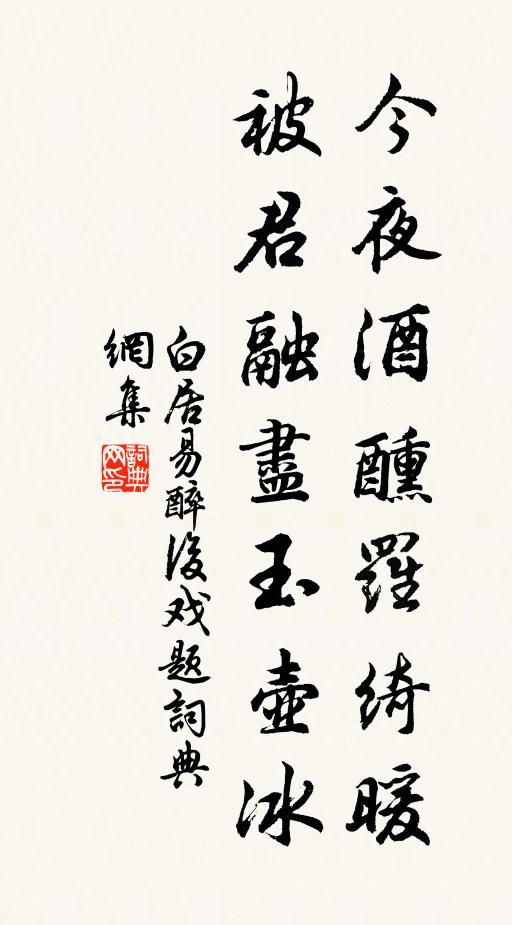 今夜酒醺羅綺暖
被君融盡玉壺冰
白居易醉後戏题詞典
網集
詞典网印